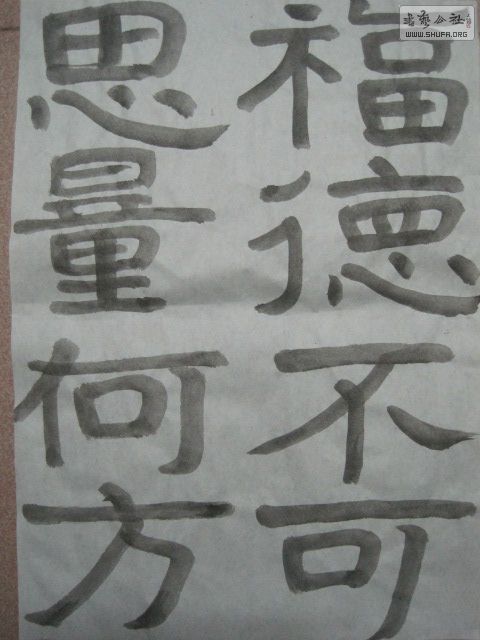 福德不可
思量何方
書藝公社
WWW.SHUFA.ORG